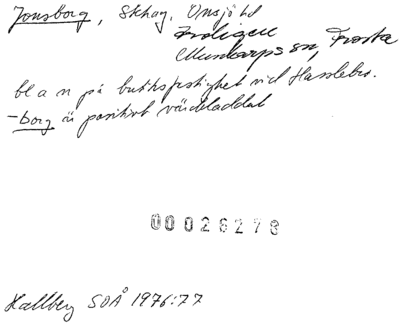 Jonsborg, Skhag. Onsjö hd
troligen
Munkarps sn, Frosta
bl a n på butiksfastighet vid Hasslebro.
-borg är positivt värdeladdat
00026278
Hallberg SOÅ 1976:77